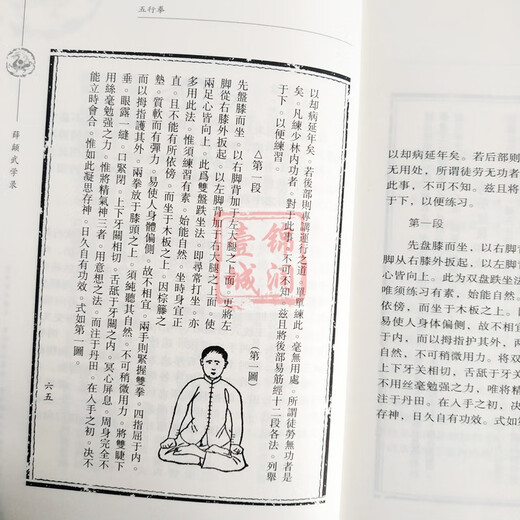 五行拳
薛顛武学录
以却病延年矣。若後部則專講運行之道。單單練此。毫無用處。所謂徒勞無功者是
矣。凡練少林内功者。對于此事。不可不知。兹且將後部易筋經十二段各法。列舉
于下。以便練習。
△第一段
(第一圖)
先盤膝而坐。以右脚背加于左大腿之上面。更將左
脚從右膝外扳起。以左脚背加于右大腿之上面。使
兩足心皆向上。此爲雙盤趺坐法。即尋常打坐。亦
多用此法。惟須練習有素。始能自然。坐時身宜正
直。且不能有所依傍。而坐于木板之上。因棕藤之
墊。質軟而有彈力。易使人身體偏側。故不相宜。兩手則緊握雙拳。四指屈于内。
而以拇指護其外。兩拳放于膝頭之上。須純聽其自然。不可稍微用力。將雙睫下
垂。眼露一縫。口緊閉。上下牙關相切。舌舐于牙關之内。冥心屏息。周身完全不
用絲毫勉强之力。惟將精氣神三者。用意想之法。而注于丹田。在入手之初。决不
能立時會合。惟如此凝思存神。日久自有功效。式如第一圖。
六五
以却病延年矣。若后部则
无用处，所谓徒劳无功者
此事，不可不知。兹且将
于下，以便练习。
第一段
先盘膝而坐，以右脚
脚从右膝外扳起，以左脚
心皆向上。此为双盘趺坐
唯须练习有素，始能自然
依傍，而坐于木板之上。
易使人身体偏侧，故不相
内，而以拇指护其外，两
自然，不可稍微用力。将
上下牙关相切，舌舐于牙
不用丝毫勉强之力，唯将
注于丹田。在入手之初，
存神，日久自有功效。式如